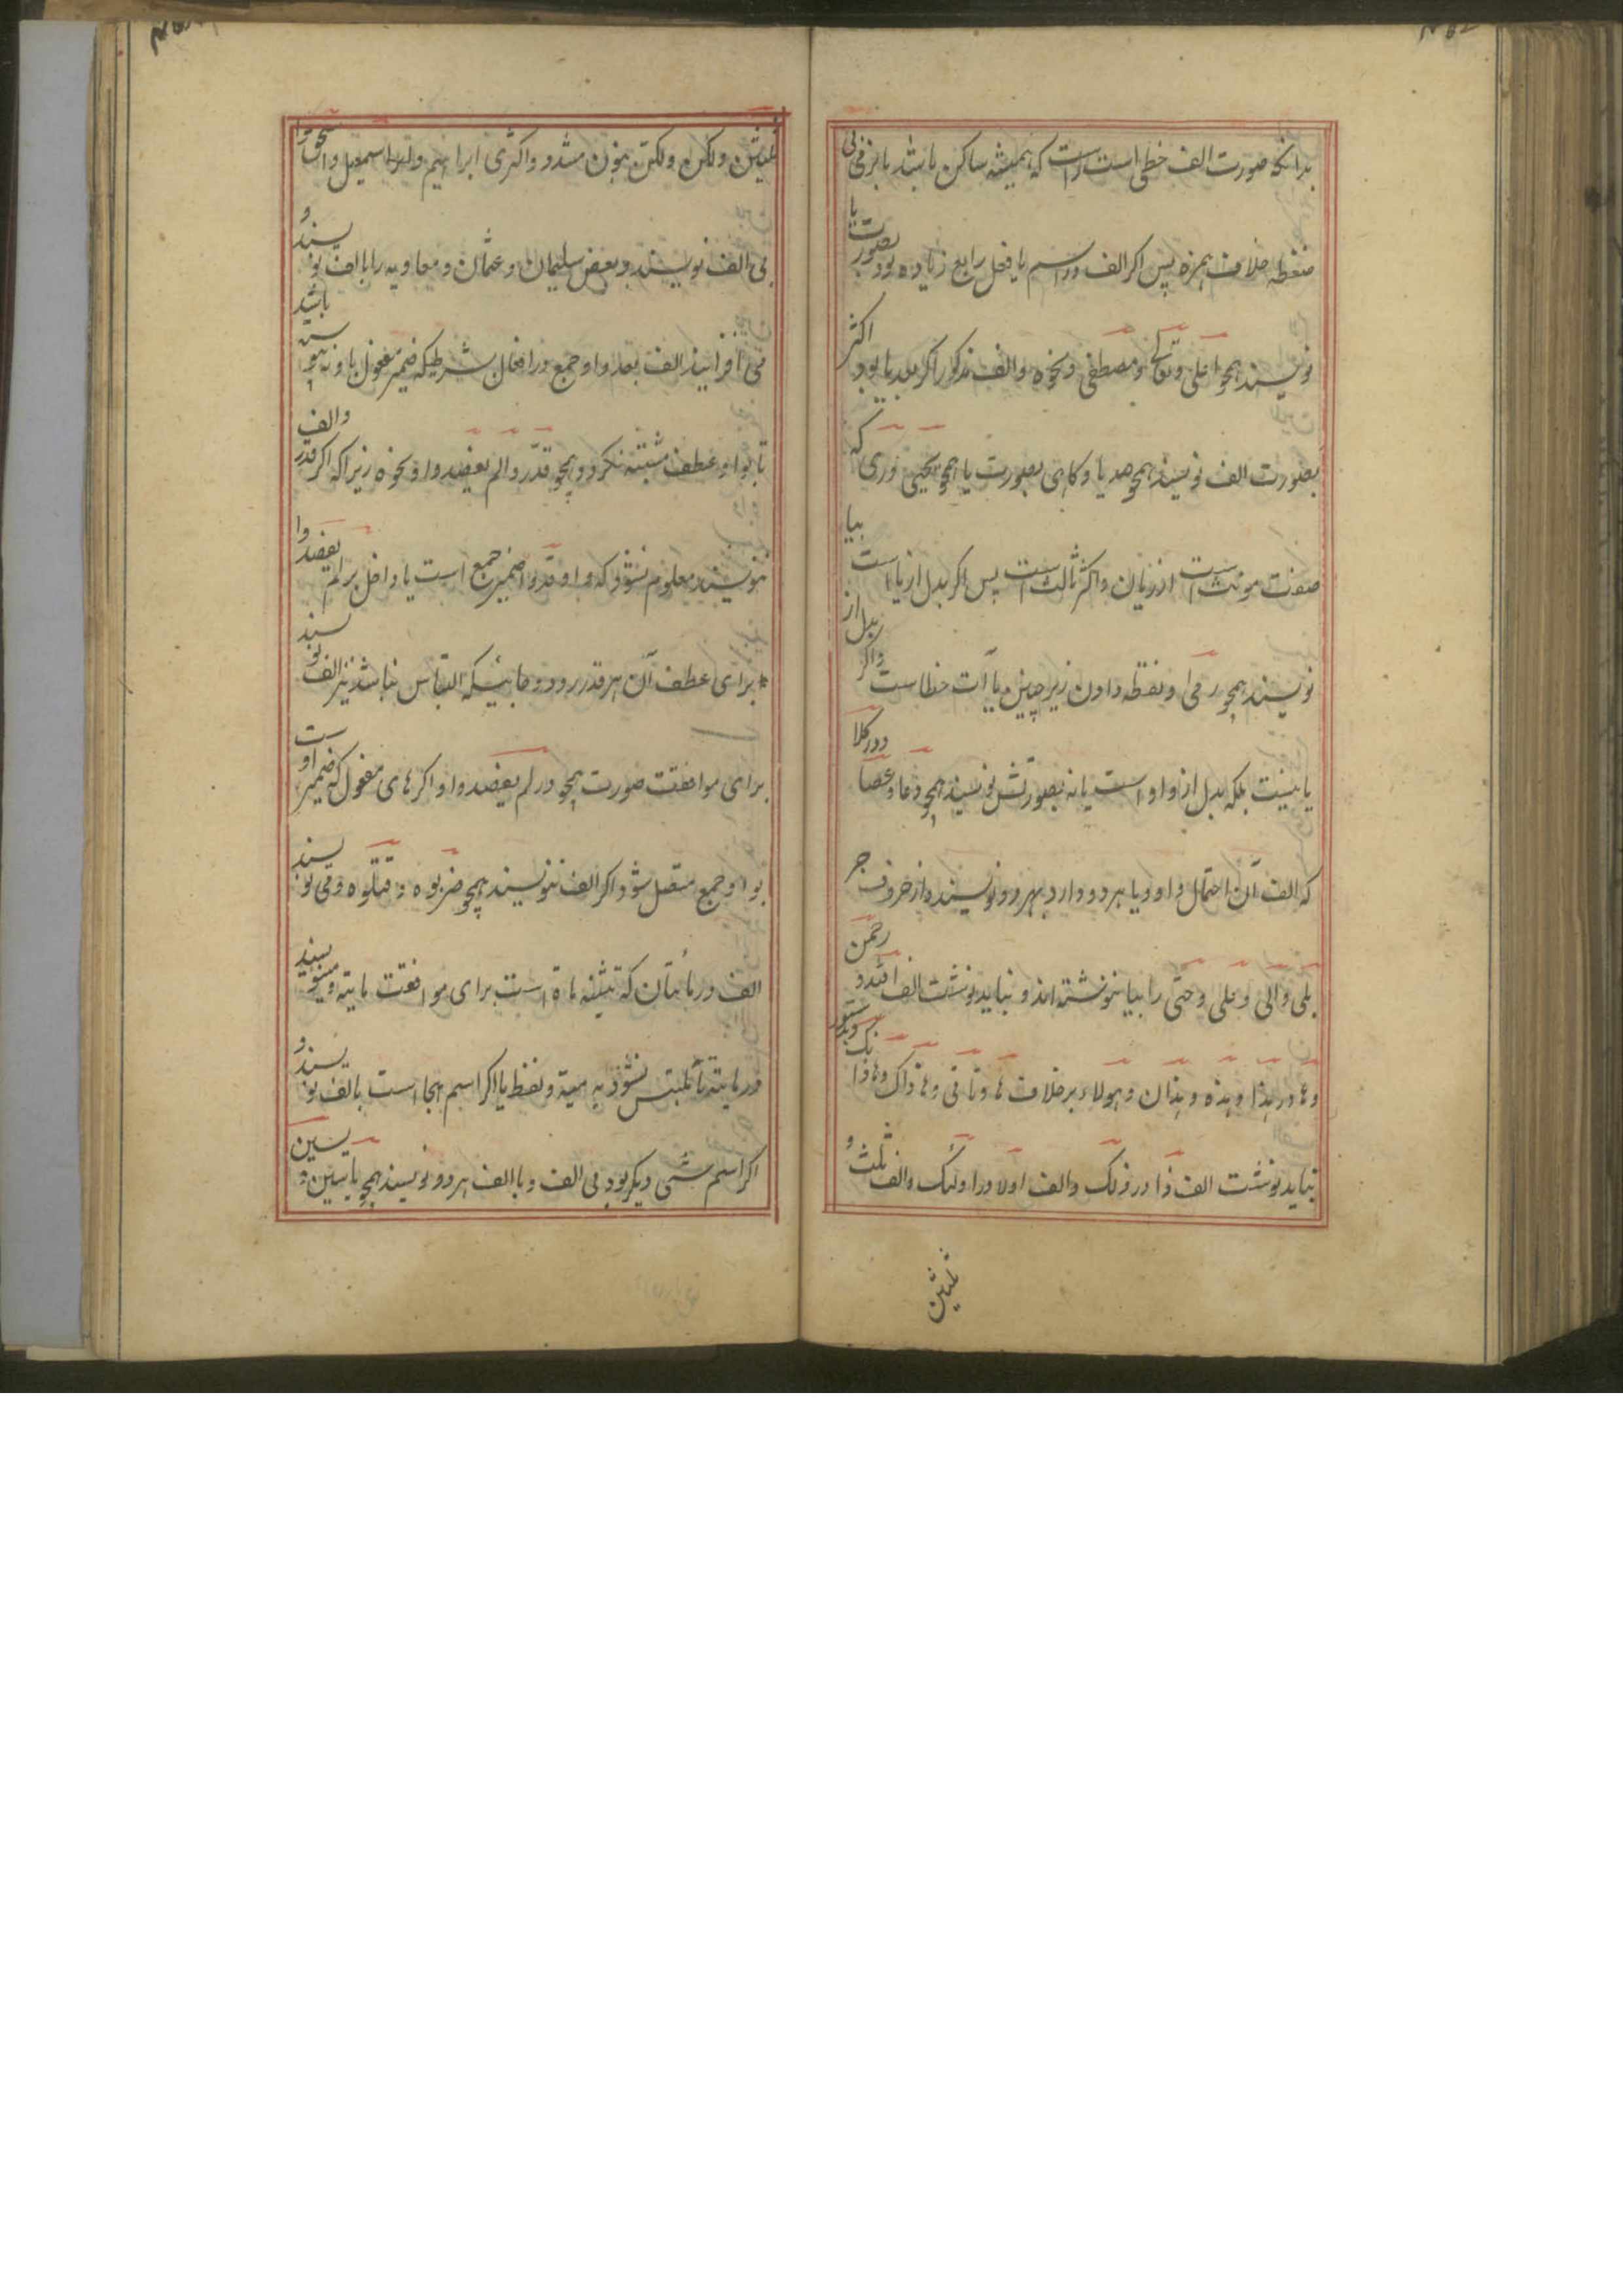 بدانکه صورت الف خطی است راست که همیشه ساکن باشد یا بزخمی بی
ضغطه خلاف همزه پس اکر الف در اسم یا فعل رابع زیاده بود بصورت یا
نویسند همچو اعلی و تعالی و مصطفی و نحوه والف مذکور را اکر بعد یا بود اکثر
بصورت الف نویسند همچو صدیا و کاهی بصورت یا همچو یحیی و ری که
صفت مونث است از ریان و اکثر ثالث است پس اکر بدل از یا است بیا
نویسند همچو رمی و نقطه دادن زیر چنین یاآت خطاست و اکر بدل از
یا نیست بلکه بدل از واو است یا نه بصورتش نویسند همچو دعا و عصا و در کلا
که الف آن احتمال واو و یا هر دو دارد بهر دو نویسند و از حروف جر
بلی و الی و علی و حتی را بیا نوشته اند و نباید نوشت الف الله و رحمن
و ها در هذا و هذه و هذان و هولاء بر خلاف ها و تا تی و ها ذاک و ها ذا
نباید نوشت الف ذا در ذلک والف اولا در اولئک والف ثلث و
ثلثین
ثلثین و لکن و لکن بنون مشدد و اکثری ابراهیم و اسمعیل و اسحق را
بی الف نویسند و بعضی سلیمان و عثمان و معاویه را با الف نویسند و
می افزایند الف بعد واو جمع در افعال بشرطیکه ضمیر مفعول با و نه پیوسته باشد
تا بواو عطف مشتبه نکردد همچو قدروا لم یعضدوا و نحوه زیرا که اکر قدر والف
ننویسند معلوم نشود که واو قدروا ضمیر جمع است یا داخل بر لم یعضدوا
برای عطف آن بر قدر رود و جائیکه التباس نباشد نیز الف نویسند
برای موافقت صورت همچو در لم یعضدوا و اکر های مفعول که ضمیر او ست
بواو جمع متصل شود اکر الف ننویسند همچو ضربوه و قتلوه و می نویسند
الف در مأتان که تثنیه ماة است برای موافقت مایة و مینویسند
در مایة تا ملتبس نشود به میة و لفظ یا اکر اسم هجا است بالف نویسند و
اکر اسم شی دیکر بود بی الف و با الف هر دو نویسند همچو یاسین و یسین